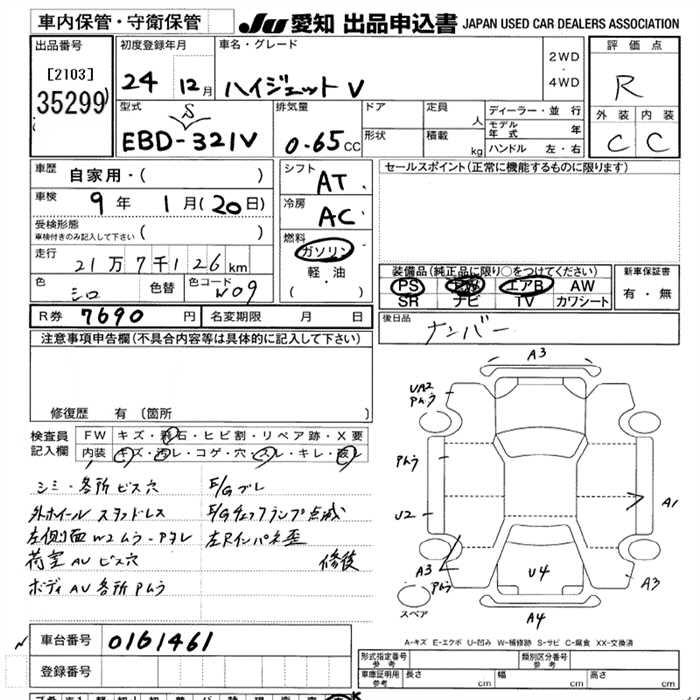 車内保管・守衛保管
JU 愛知 出品申込書 JAPAN USED CAR DEALERS ASSOCIATION
出品番号
[2103]
35299
初度登録年月
24 12月
車名・グレード
ハイゼットV
2WD
・
4WD
評価点
R
外装 内装
C C
型式
S
EBD-321V
排気量
0.65CC
ドア
形状
定員 人
積載 kg
ディーラー・並行
モデル年式 年
ハンドル 左・右
車歴
自家用・( )
車検
9年 1月(20日)
受検形態
車検付きのみ記入して下さい ( )
走行
21万7千126km
色
シロ
色替
色コード
W09
シフト
AT
冷房
AC
燃料
ガソリン
軽・油
( )
セールスポイント(正常に機能するものに限ります)
装備品(純正品に限り○をつけてください)
PS エアB AW
SR ナビ TV カワシート
新車保証書
有・無
R券 7690円
名変期限 月 日
後日品
ナンバー
注意事項申告欄(不具合内容等は具体的に記入して下さい)
修復歴 有 〔箇所 〕
検査員
記入欄
FW キズ・飛石・ヒビ割・リペア跡・X要
内装 キズ・汚レ・コゲ・穴・スレ・キレ・破レ
シミ・各所ビス穴
外ホイール スタッドレス
左側面W2ムラ-Pタレ
荷室AUビス穴
ボディAU各所Pムラ
E/Gブレ
E/Gチェックランプ点滅
左Rインパネ歪
修復
A3
UA2
Pムラ
Pムラ
U2
A1
A3
Pムラ
U4
A3
A4
スペア
A-キズ E-エクボ U-凹み W-補修跡 S-サビ C-腐食 XX-交換済
車台番号 0161461
登録番号
形式指定番号
参考
類別区分番号
参考
車庫証明用
参考
長さ cm
幅 cm
高さ cm